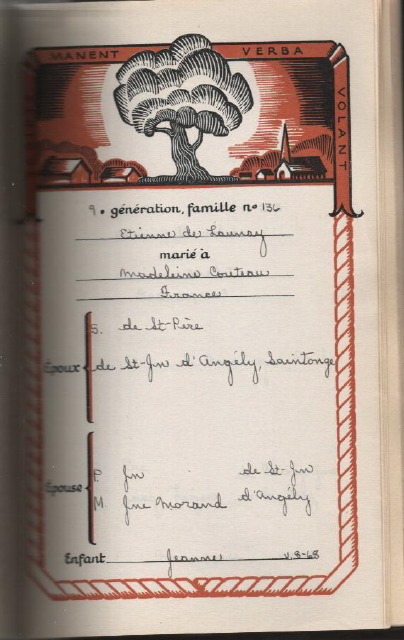 MANENT VERBA VOLANT
9e génération, famille no 136
Etienne de Launay
marié à
Madeleine Couteau
France
S. de St-Père
Époux de St-Jn d'Angély, Saintonge
P. Jn de St-Jn
Épouse
M. Jne Morand d'Angély
Enfant Jeanne v. 8-68